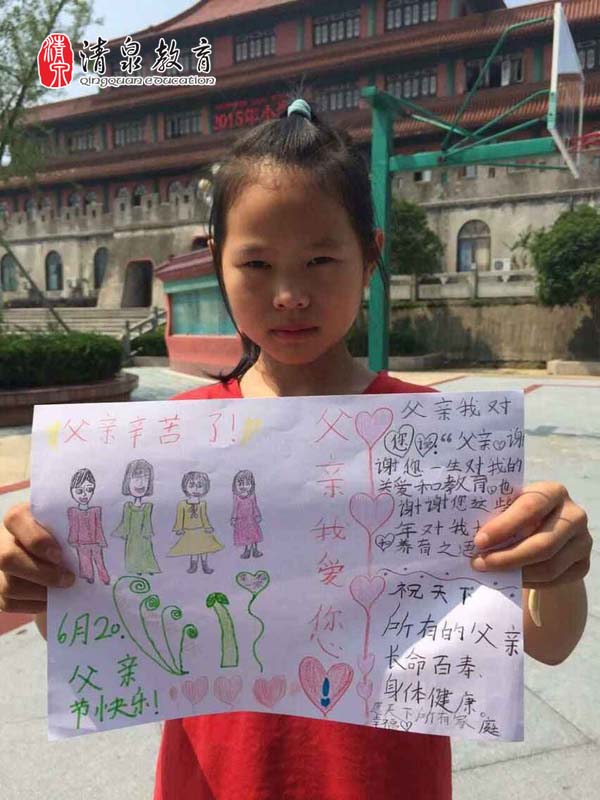 清泉
清泉教育
Qingquan education
2015年
父亲辛苦了!
6月20.
父亲
节快乐!
父亲我爱您
父亲我对
您说:“父亲谢
谢你一生对我的
关爱和教育。也
谢谢您这些
年对我
养育之
祝天下
所有的父亲
长命百寿、
身体健康。
天下所有家庭